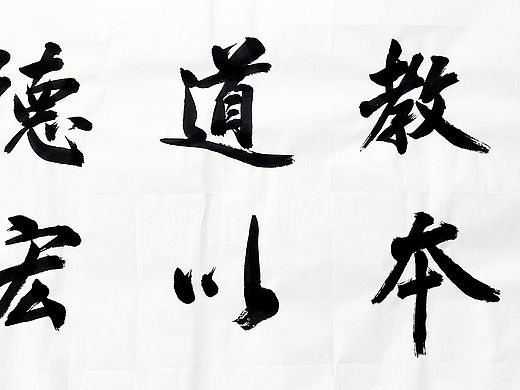 教本
道以
德宏